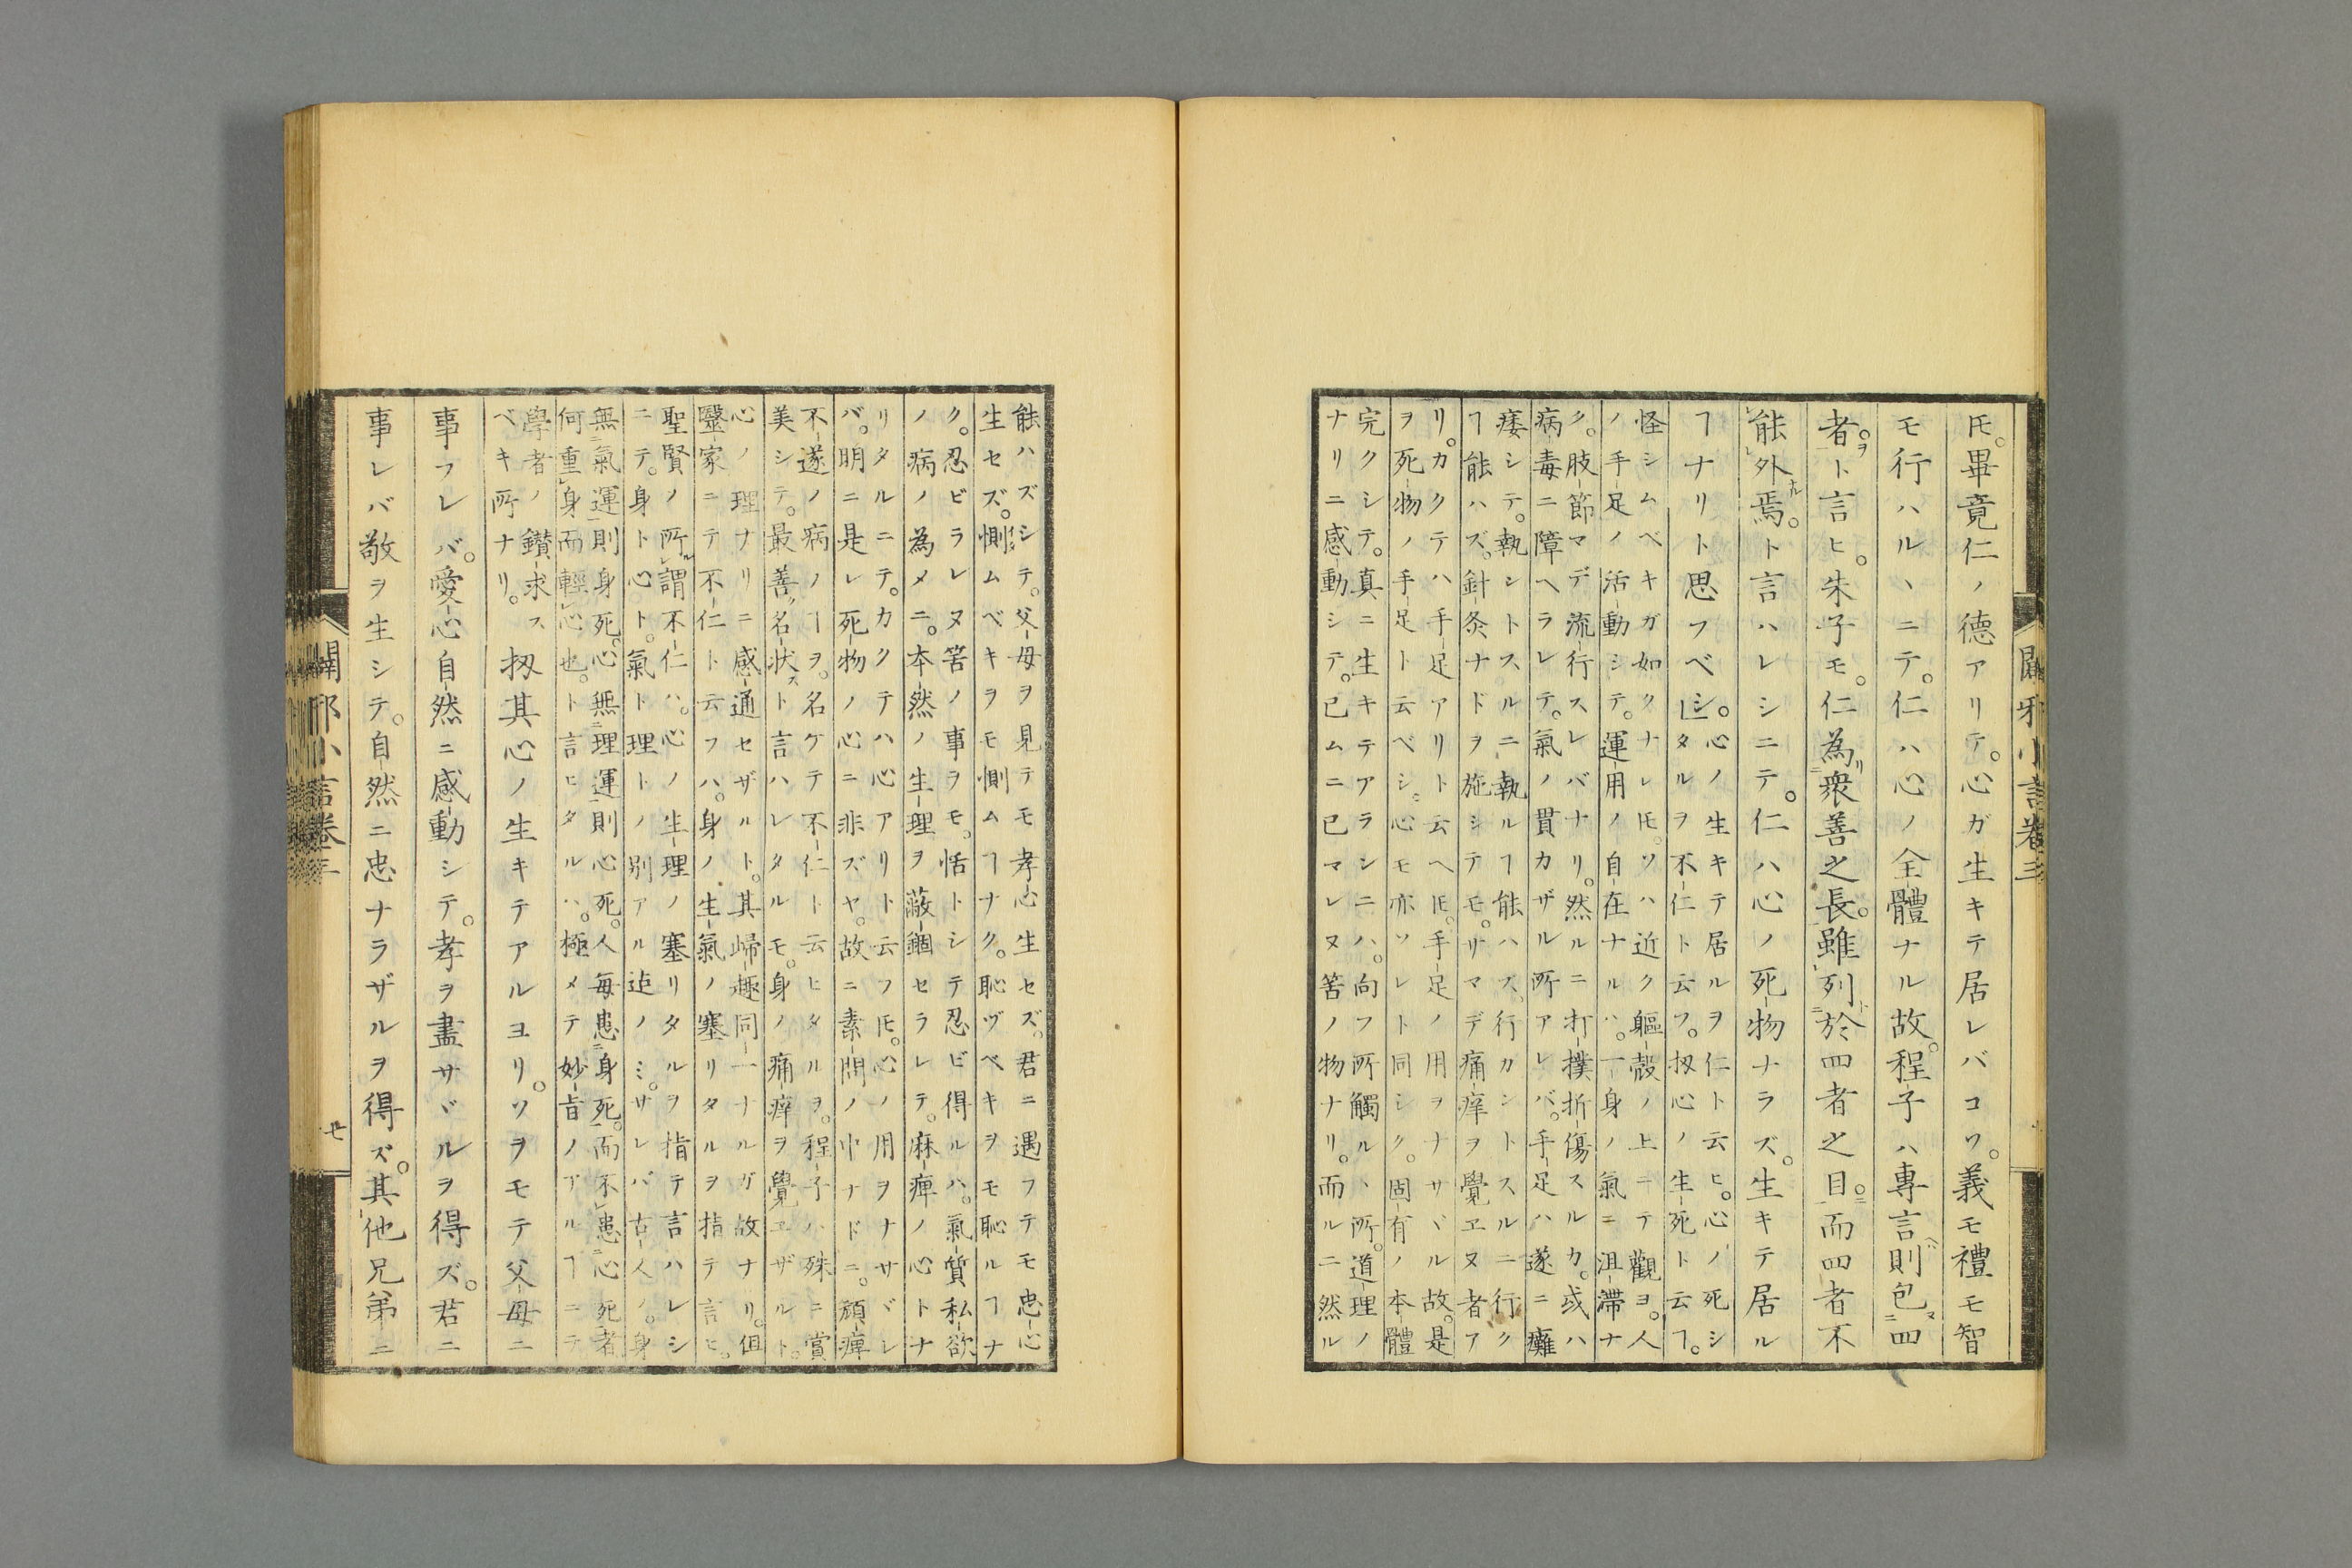 闢邪小言卷三
𪜈。畢竟仁ノ德アリテ。心ガ生キテ居レバコソ。義モ禮モ智
モ行ハルヽニテ。仁ハ心ノ全體ナル故。程子ハ專言則包四
者。ト言ヒ。朱子モ。仁為衆善之長。雖列於四者之目。而四者不
能外焉。ト言ハレシニテ。仁ハ心ノ死物ナラズ。生キテ居ル
ヿナリト思フベシ。
心ノ生キテ居ルヲ仁ト云ヒ。心ノ死シ
タルヲ不仁ト云フ。扨心ノ生死ト云ヿ。
怪シムベキガ如クナレ𪜈。ソハ近ク軀殼ノ上ニテ觀ヨ。人
ノ手足ノ活動シテ。運用ノ自在ナルハ。一身ノ氣ニ沮滯ナ
ク。肢節マデ流行スレバナリ。然ルニ打撲折傷スルカ。或ハ
病毒ニ障ヘラレテ。氣ノ貫カザル所アレバ。手足ハ遂ニ癱
痿シテ。執シトスルニ執ルヿ能ハズ、行カントスルニ行ク
ヿ能ハズ。針灸ナドヲ施シテモ。サマデ痛痒ヲ覺エヌ者ア
リ。カクテハ手足アリト云ヘ𪜈。手足ノ用ヲナサヾル故。是
ヲ死物ノ手足ト云ベシ。心モ亦ソレト同シク。固有ノ本體
完クシテ。真ニ生キテアランニハ。向フ所觸ルヽ所。道理ノ
ナリニ感動シテ。已ムニ已マレヌ筈ノ物ナリ。而ルニ然ル
能ハズシテ。父母ヲ見テモ孝心生セズ。君ニ遇フテモ忠心
生セズ。惻ムベキヲモ惻ムヿナク。恥ヅベキヲモ恥ルヿナ
ク。忍ビラレヌ筈ノ事ヲモ。恬トシテ忍ビ得ルハ。氣質私欲
ノ病ノ為メニ。本然ノ生理ヲ蔽錮セラレテ。麻痺ノ心トナ
リタルニテ。カクテハ心アリト云フ𪜈。心ノ用ヲナサヾレ
バ。明ニ是レ死物ノ心ニ非ズヤ。故ニ素問ノ中ナドニ。頑痺
不遂ノ病ノヿヲ。名ケテ不仁ト云ヒタルヲ。程子ハ殊ニ賞
美シテ。最善名状ト言ハレタルモ。身ノ痛痒ヲ覺エザルト。
心ノ理ナリニ感通セザルト。其歸趣同一ナルガ故ナリ。但
醫家ニテ不仁ト云フハ。身ノ生氣ノ塞リタルヲ指テ言ヒ。
聖賢ノ所謂不仁ハ。心ノ生理ノ塞リタルヲ指テ言ハレシ
ニテ。身ト心ト。氣ト理トノ別アル迠ノミ。サレバ古人ノ。身
無氣運則身死。心無理運則心死。人每患身死。而不患心死者
何重身而輕心也。ト言ヒタルハ。極メテ妙旨ノアルヿニテ
學者ノ鑚求ス
ベキ所ナリ。
扨其心ノ生キテアルヨリ。ソヲモテ父母ニ
事フレバ。愛心自然ニ感動シテ。孝ヲ盡サヾルヲ得ズ。君ニ
事レバ敬ヲ生シテ。自然ニ忠ナラザルヲ得ズ。其他兄弟ニ
闢邪小言卷三
廿七